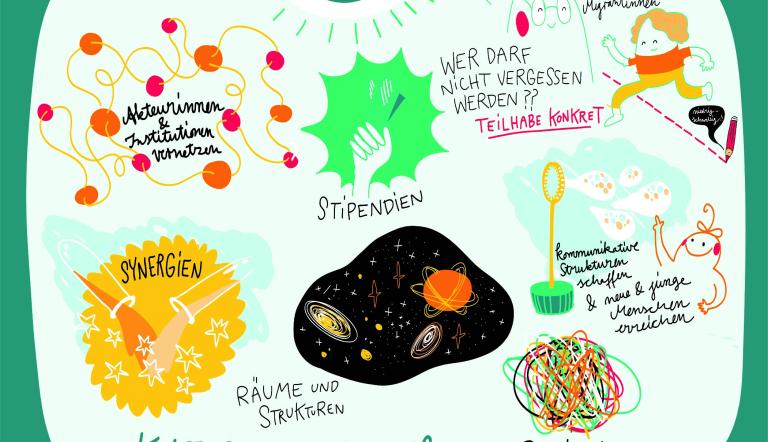 Migrantinnen
WER DARF
NICHT VERGESSEN
WERDEN??
TEILHABE KONKRET
niedrig-
schwellig!
Akteurinnen
&
Institutionen
vernetzen
STIPENDIEN
SYNERGIEN
kommunikative
Strukturen
schaffen
& neue & junge
Menschen
erreichen
RÄUME UND
STRUKTUREN